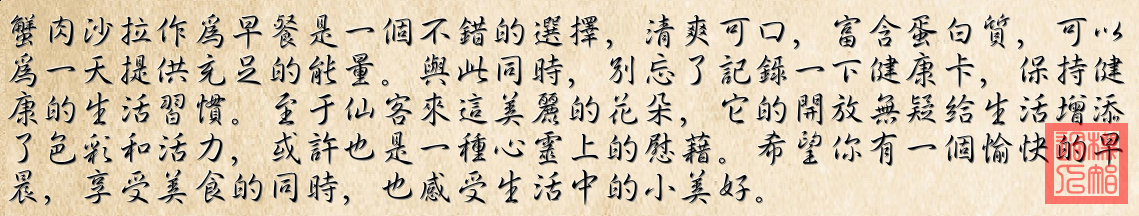 蟹肉沙拉作爲早餐是一個不錯的選擇，清爽可口，富含蛋白質，可以
爲一天提供充足的能量。與此同時，別忘了記錄一下健康卡，保持健
康的生活習慣。至于仙客來這美麗的花朵，它的開放無疑給生活增添
了色彩和活力，或許也是一種心靈上的慰藉。希望你有一個愉快的早
晨，享受美食的同時，也感受生活中的小美好。